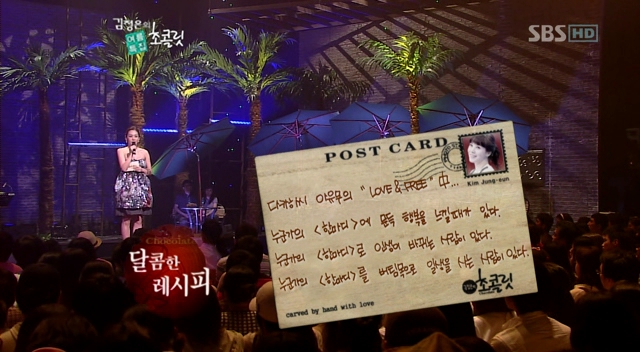 김정은의
초콜릿
여름
특집
SBS HD
POST CARD
Kim Jung-eun
다카하시 아유무의 "LOVE & FREE" 中...
누군가의 <한마디>에 문득 행복을 느낄때가 있다.
누군가의 <한마디>로 인생이 바뀌는 사람이 있다.
누군가의 <한마디>를 버팀목으로 일생을 사는 사람이 있다.
초콜릿
carved by hand with love
Chocolate
달콤한
레시피